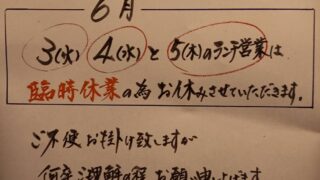 6月
3(火) 4(水) と 5(木)のランチ営業は
臨時休業の為 お休みさせていただきます。
ご不便お掛け致しますが
何卒ご理解の程 お願い申し上げます